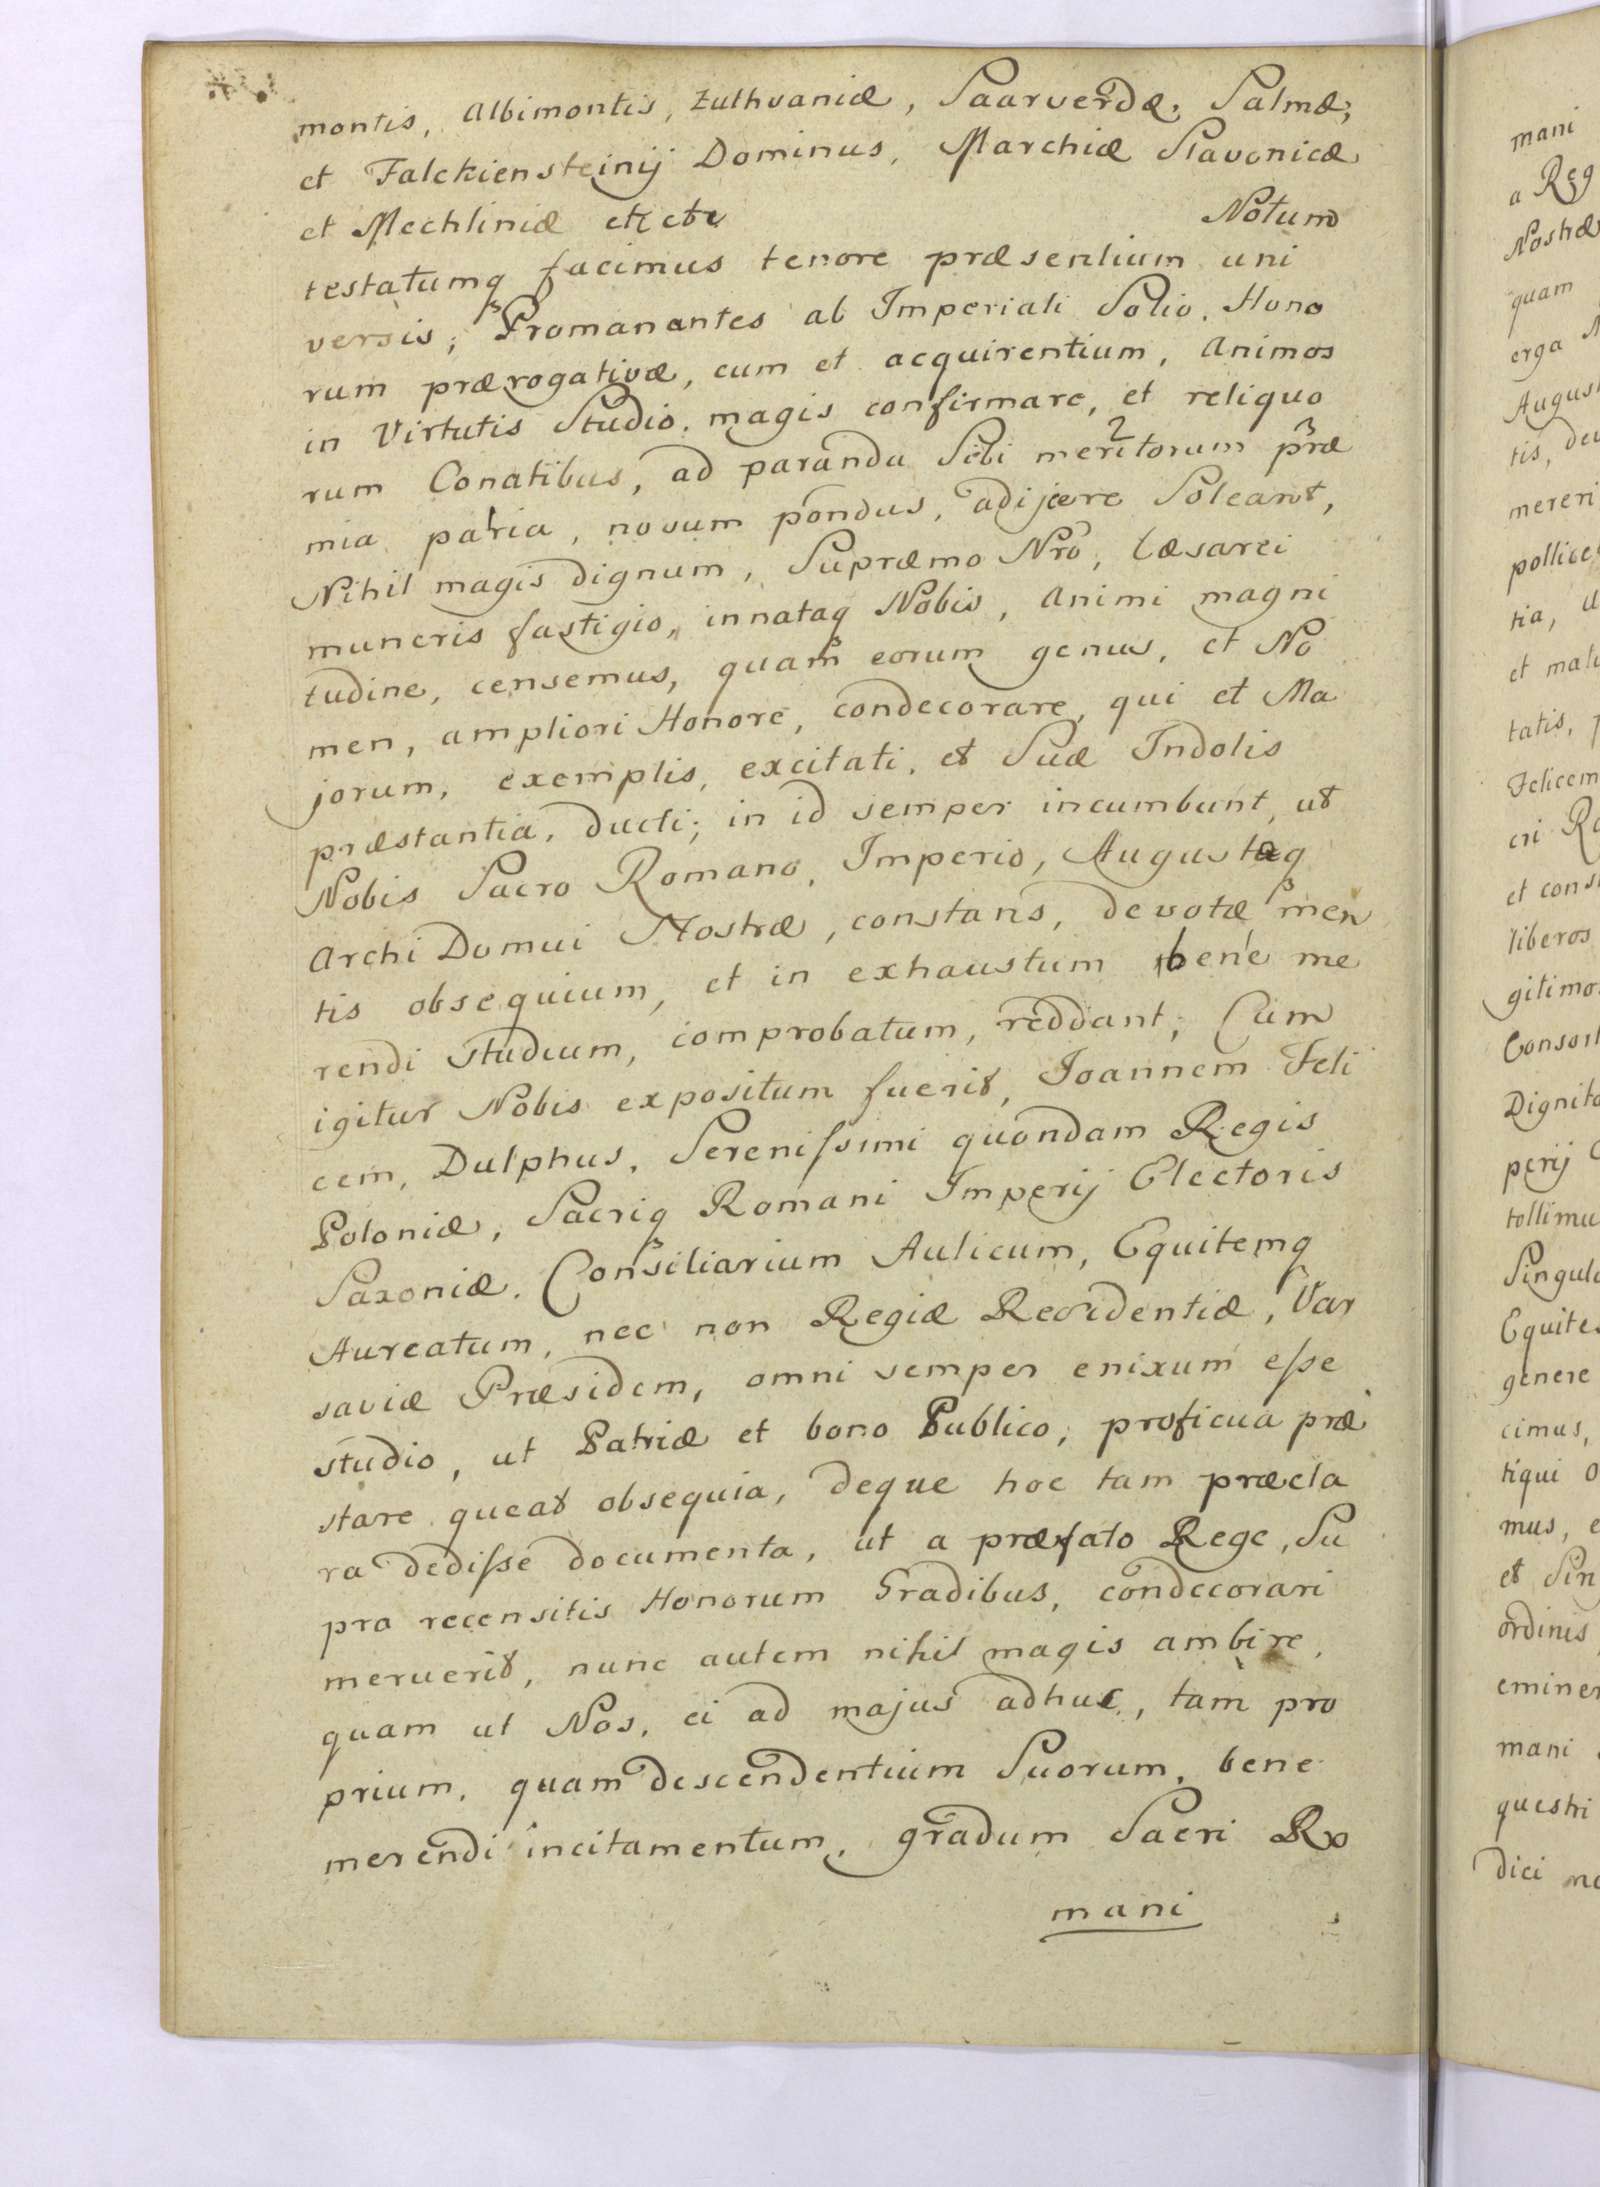 montis, Albimontis, Zuthvaniæ, Saarverdæ, Salmæ,
et Falckiensteinij Dominus, Marchiæ Slavonicæ
et Mechliniæ etc etc Notum
testatumq facimus tenore præsentium uni
versis; Promanantes ab Imperiali Solio, Hono
rum prærogativæ, cum et acquirentium, Animos
in Virtutis Studio, magis confirmare, et reliquo
rum Conatibus, ad paranda Sibi meritorum præ
mia patria, novum pondus, adijcere Soleant,
Nihil magis dignum, Supræmo Nro, Cæsarei
muneris fastigio, innataq Nobis, Animi magni
tudine, censemus, quam eorum genus, et No
men, ampliori Honore, condecorare, qui et Ma
jorum, exemplis, excitati, et Suæ Indolis
præstantia, ducti; in id semper incumbunt, ut
Nobis Sacro Romano, Imperio, Augustæq
Archi Domui Nostræ, constans, devotæ men
tis obsequium, et in exhaustum bene me
rendi studium, comprobatum, reddant; Cum
igitur Nobis expositum fuerit, Joannem Feli
cem, Dulphus, Serenissimi quondam Regis
Poloniæ, Sacriq Romani Imperij Electoris
Saxoniæ, Consiliarium Aulicum, Equitemq
Aureatum, nec non Regiæ Residentiæ, Var
saviæ Præsidem, omni semper enixum esse
studio, ut Patriæ et bono Publico, proficua præ
stare queat obsequia, deque hoc tam præcla
ra dedisse documenta, ut a præfato Rege, Su
pra recensitis Honorum Gradibus, condecorari
meruerit, nunc autem nihil magis ambire,
quam ut Nos, ei ad majus adhuc, tam pro
prium, quam descendentium Suorum, bene
merendi incitamentum, gradum Sacri Ro
mani
mani
a Reg
Nostræ
quam
erga N
August
tis, dev
mereri
pollice
tia,
et mat
tatis,
Felicem
cri Ro
et cons
liberos
gitimo
Consort
Dignita
perij
tollimu
Singul
Equites
genere
cimus,
tiqui o
mus, e
et Sin
ordinis
eminen
mani
questri
dici no